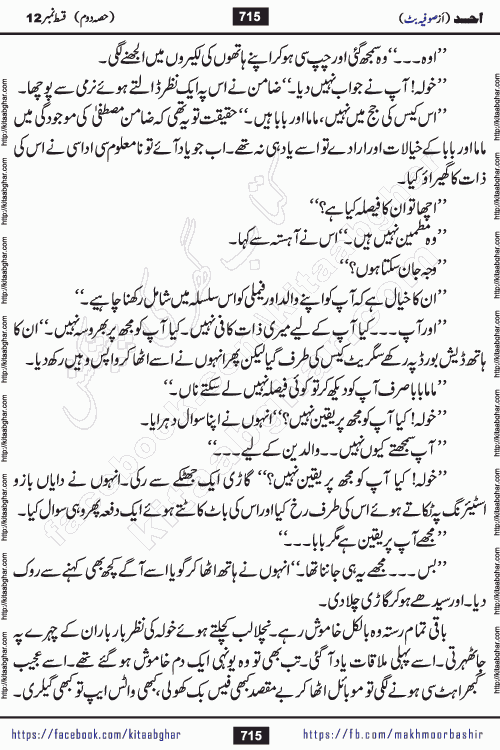 احد (از صوفیہ بٹ)
715
(حصہ دوم) قسط نمبر 12
’’اوہ۔۔۔‘‘ وہ سمجھ گئی اور چپ سی ہو کر اپنے ہاتھوں کی لکیروں میں الجھنے لگی۔
’’خولہ! آپ نے جواب نہیں دیا۔‘‘ ضامن نے اس پہ ایک نظر ڈالتے ہوئے نرمی سے پوچھا۔
’’اس کیس کی جج میں نہیں، ماما اور بابا ہیں۔‘‘ حقیقت تو یہ تھی کہ ضامن مصطفیٰ کی موجودگی میں
ماما اور بابا کے خیالات اور ارادے تو اسے یاد ہی نہ تھے۔ اب جو یاد آئے تو نامعلوم سی اداسی نے اس کی
ذات کا گھیراؤ کیا۔
’’اچھا تو ان کا فیصلہ کیا ہے؟‘‘
’’وہ مطمئین نہیں ہیں۔‘‘ اس نے آہستہ سے کہا۔
’’وجہ جان سکتا ہوں؟‘‘
’’ان کا خیال ہے کہ آپ کو اپنے والد اور فیملی کو اس سلسلہ میں شامل رکھنا چاہیے۔‘‘
’’اور آپ۔۔۔ کیا آپ کے لیے میری ذات کافی نہیں۔ کیا آپ کو مجھ پر بھروسہ نہیں۔‘‘ ان کا
ہاتھ ڈیش بورڈ پہ رکھے سگریٹ کیس کی طرف گیا لیکن پھر انہوں نے اسے اٹھا کر واپس وہیں رکھ دیا۔
’’ماما بابا صرف آپ کو دیکھ کر تو کوئی فیصلہ نہیں لے سکتے ناں۔‘‘
’’خولہ! کیا آپ کو مجھ پر یقین نہیں؟‘‘ انہوں نے اپنا سوال دہرایا۔
’’آپ سمجھتے کیوں نہیں۔۔ والدین کے لیے۔۔۔‘‘
’’خولہ! کیا آپ کو مجھ پر یقین نہیں؟‘‘ گاڑی ایک جھٹکے سے رکی۔ انہوں نے دایاں بازو
اسٹیئرنگ پر ٹکاتے ہوئے اس کی طرف رخ کیا اور اس کی بات کاٹتے ہوئے ایک دفعہ پھر وہی سوال کیا۔
’’مجھے آپ پر یقین ہے مگر بابا۔۔۔‘‘
’’بس۔۔۔ مجھے یہ ہی جاننا تھا۔‘‘ انہوں نے ہاتھ اٹھا کر گویا اسے آگے کچھ بھی کہنے سے روک
دیا۔ اور سیدھے ہو کر گاڑی چلا دی۔
باقی تمام رستہ وہ بالکل خاموش رہے۔ نچلا لب کچلتے ہوئے خولہ کی نظر بار بار ان کے چہرے پہ
جا ٹھہرتی۔ اسے پہلی ملاقات یاد آ گئی۔ تب بھی تو وہ یونہی ایک دم خاموش ہو گئے تھے۔ اسے عجیب
گھبراہٹ سی ہونے لگی تو موبائل اٹھا کر بے مقصد کبھی فیس بک کھولی، کبھی واٹس ایپ تو کبھی گیلری۔
https://facebook.com/kitaabghar
715
https://fb.com/makhmoorbashir
http://kitaabghar.com